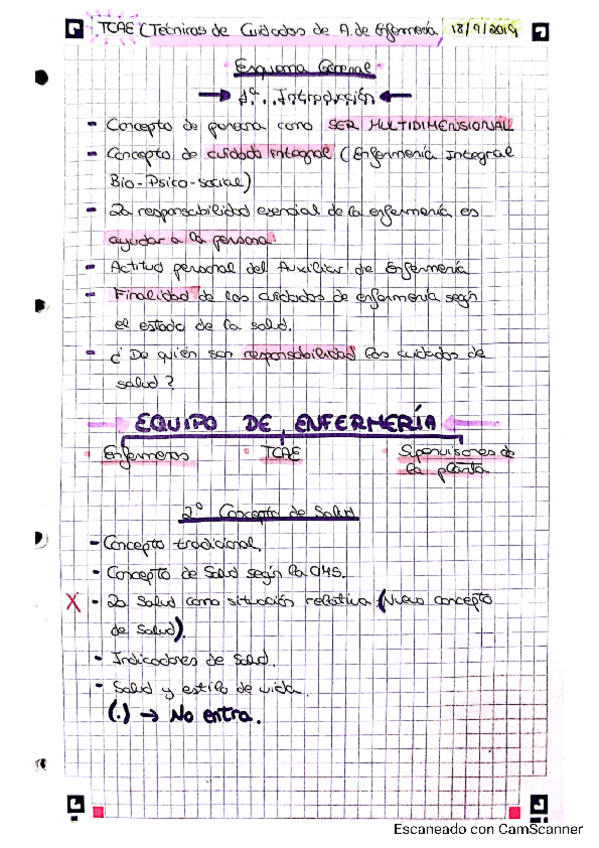 TCAE (Técnicas de Cuidados de A. de Enfermería 18/9/2019
Esquema General
→ 1º. Introducción ←
- Concepto de persona como SER MULTIDIMENSIONAL
- Concepto de cuidado integral (Enfermería Integral
Bio-Psico-social)
- La responsabilidad esencial de la enfermería es
ayudar a la persona
- Actitud personal del Auxiliar de Enfermería
- Finalidad de los cuidados de enfermería según
el estado de la salud.
- ¿De quién son responsabilidad los cuidados de
salud?
EQUIPO DE ENFERMERÍA
Enfermeros TCAE Supervisores de
la planta
2º Concepto de Salud
- Concepto tradicional.
- Concepto de Salud según la OMS.
X - La Salud como situación relativa (Nuevo concepto
de Salud).
- Indicadores de Salud.
- Salud y estilo de vida.
(.) → No entra.
Escaneado con CamScanner